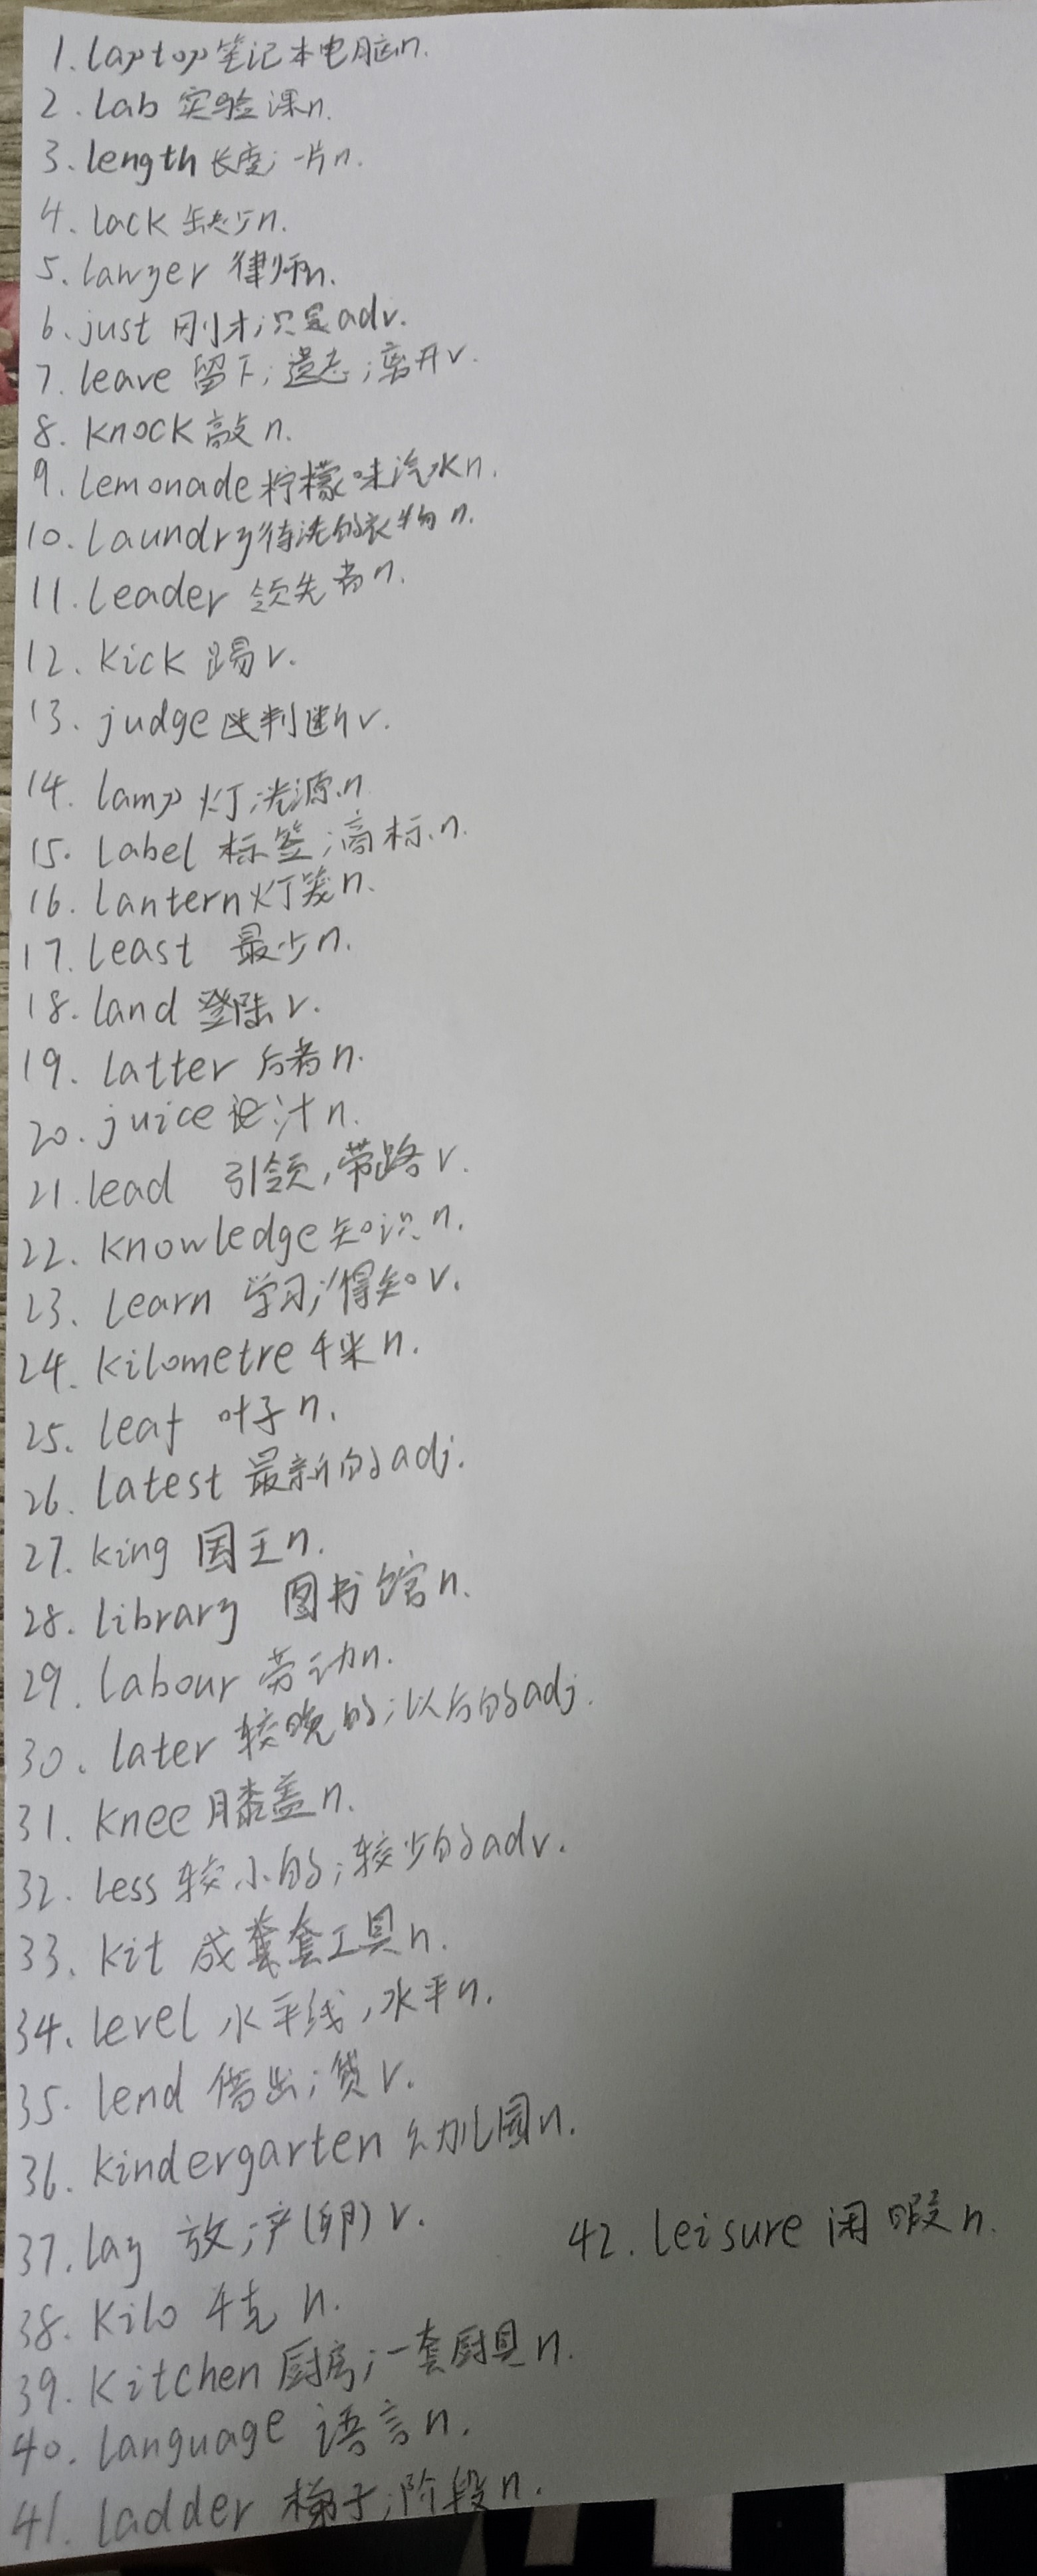 1. laptop 笔记本电脑n.
2. lab 实验课n.
3. length 长度;一片n.
4. lack 缺少n.
5. lawyer 律师n.
6. just 刚才;只是adv.
7. leave 留下;遗忘;离开v.
8. knock 敲n.
9. lemonade 柠檬味汽水n.
10. laundry 待洗的衣物n.
11. leader 领先者n.
12. kick 踢v.
13. judge 判断v.
14. lamp 灯;光源n
15. label 标签;商标n.
16. lantern 灯笼n.
17. least 最少n.
18. land 登陆v.
19. latter 后者n.
20. juice 汁n.
21. lead 引领,带路v.
22. knowledge 知识n.
23. learn 学习;得知v.
24. kilometre 千米n.
25. leaf 叶子n.
26. latest 最新的adj.
27. king 国王n.
28. library 图书馆n.
29. labour 劳动n.
30. later 较晚的;以后的adj.
31. knee 膝盖n.
32. less 较小的;较少的adv.
33. kit 成套工具n.
34. level 水平线,水平n.
35. lend 借出;贷v.
36. kindergarten 幼儿园n.
37. lay 放;产(卵)v.
42. leisure 闲暇n.
38. kilo 千克n.
39. kitchen 厨房;一套厨具n.
40. language 语言n.
41. ladder 梯子;阶段n.